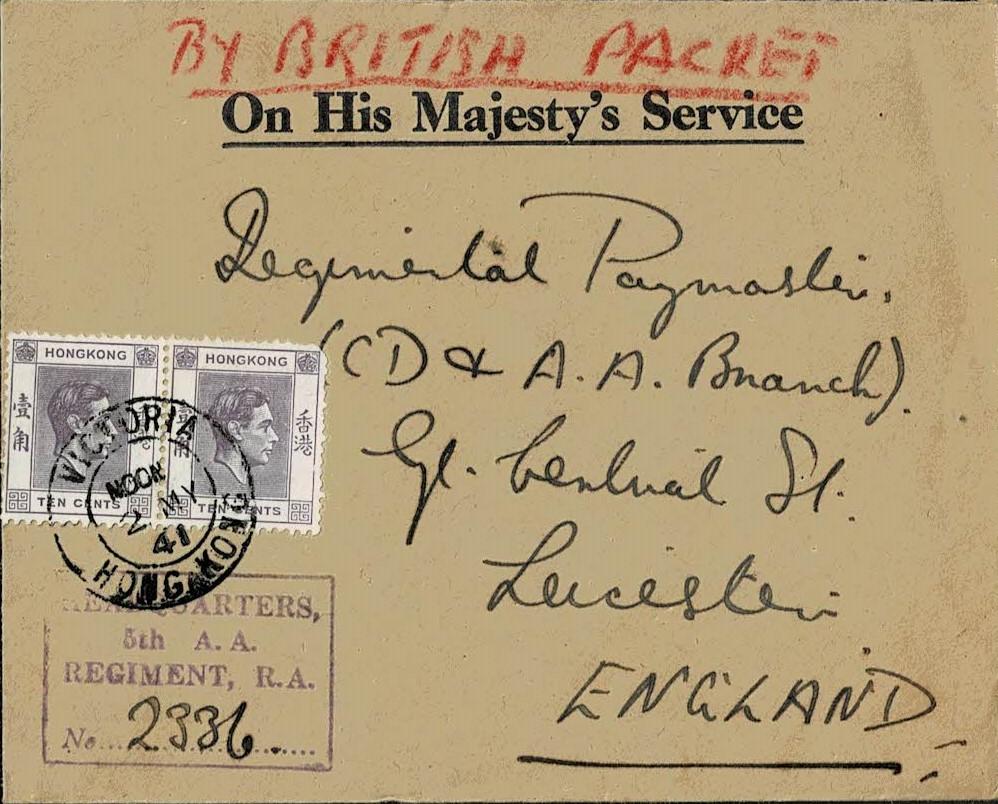 BY BRITISH PACKET
On His Majesty's Service
Regimental Paymaster.
(CD & A.A. Branch).
Gt. Central St.
Leicester
ENGLAND
HONGKONG HONGKONG
壹角 壹角 香港
TEN CENTS TEN CENTS
VICTORIA
NOON
2 MY
41
HONG KONG
HEADQUARTERS,
5th A. A.
REGIMENT, R.A.
No. 2336.